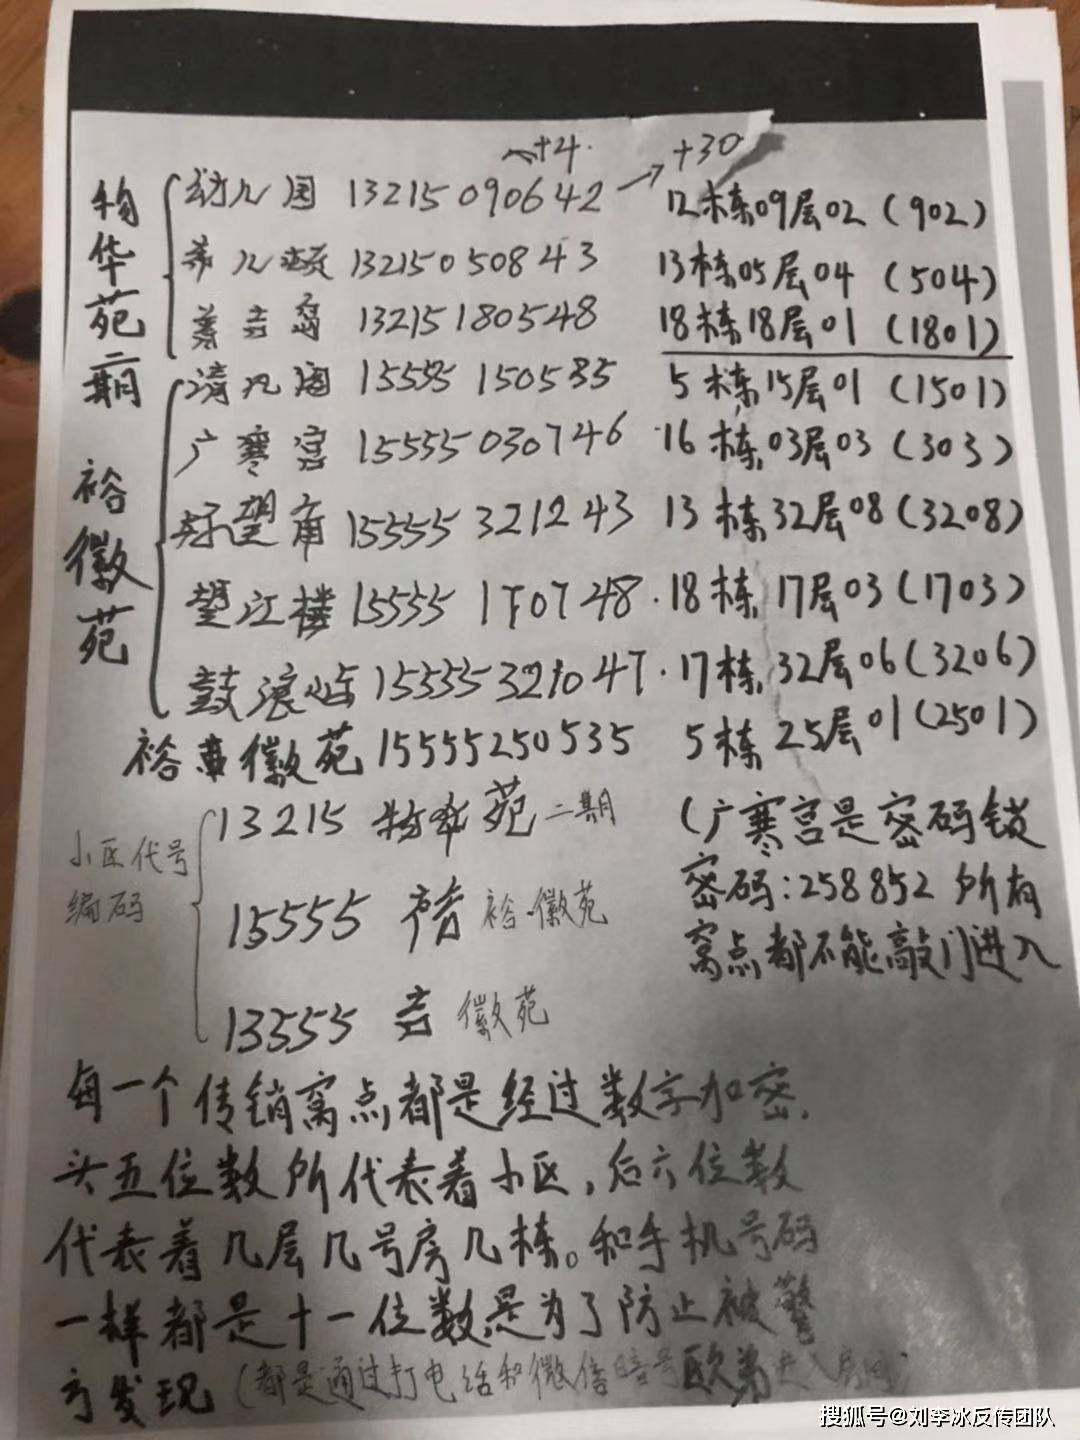 +4 → +30
构华苑二期
幼儿园 13215090642 12栋09层02(902)
13215050843 13栋05层04(504)
13215180548 18栋18层01(1801)
裕徽苑
清凡园 15555150535 5栋15层01(1501)
广寒宫 15555030746 16栋03层03(303)
好望角 15555321243 13栋32层08(3208)
望江楼 15555170748 18栋17层03(1703)
鼓浪屿 15555321047 17栋32层06(3206)
裕徽苑 15555250535 5栋25层01(2501)
小区代号
编码
13215 苑二期
15555 裕徽苑
13555 徽苑
(广寒宫是密码锁
密码:258852 所有
窝点都不能敲门进入
每一个传销窝点都是经过数字加密.
头五位数所代表着小区,后六位数
代表着几层几号房几栋。和手机号码
一样都是十一位数,是为了防止被警
方发现(都是通过打电话和微信暗号
搜狐号@刘李冰反传团队